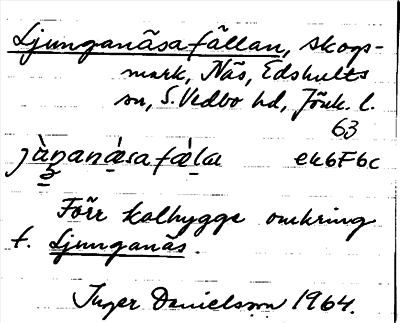 Ljunganäsafällan, skogs-
mark, Näs, Edshults
sn, S. Vedbo hd, Jönk. l.
63
jàŋanásafäla ek6F6c
Förr kalhygge omkring
t. Ljunganäs.
Inger Danielsson 1964.